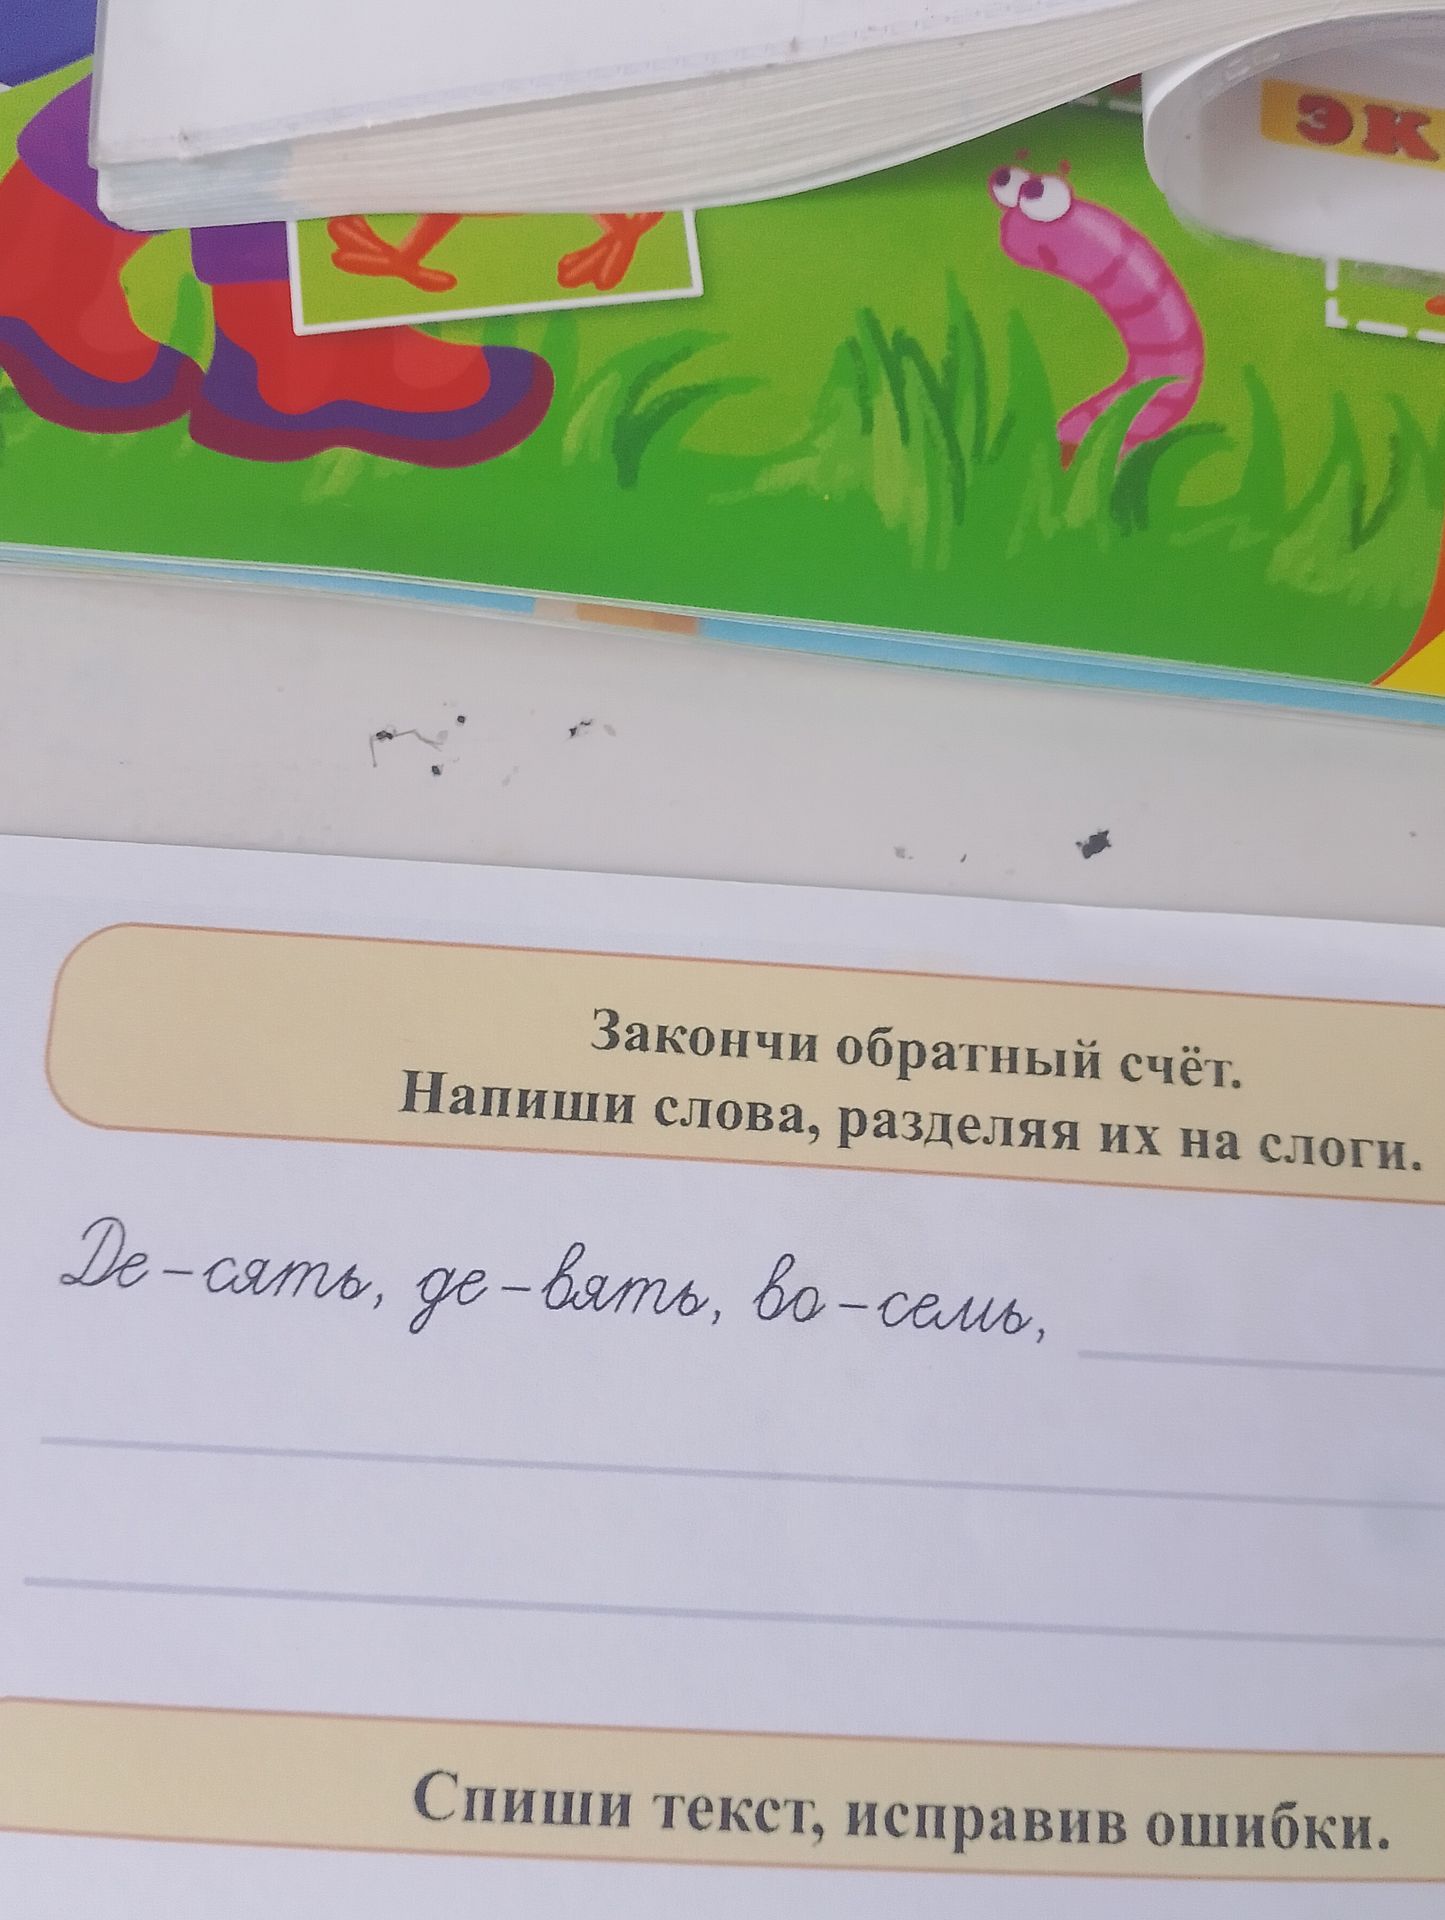 ЭК
Закончи обратный счёт.
Напиши слова, разделяя их на слоги.
Де-сять, де-вять, во-семь,
Спиши текст, исправив ошибки.